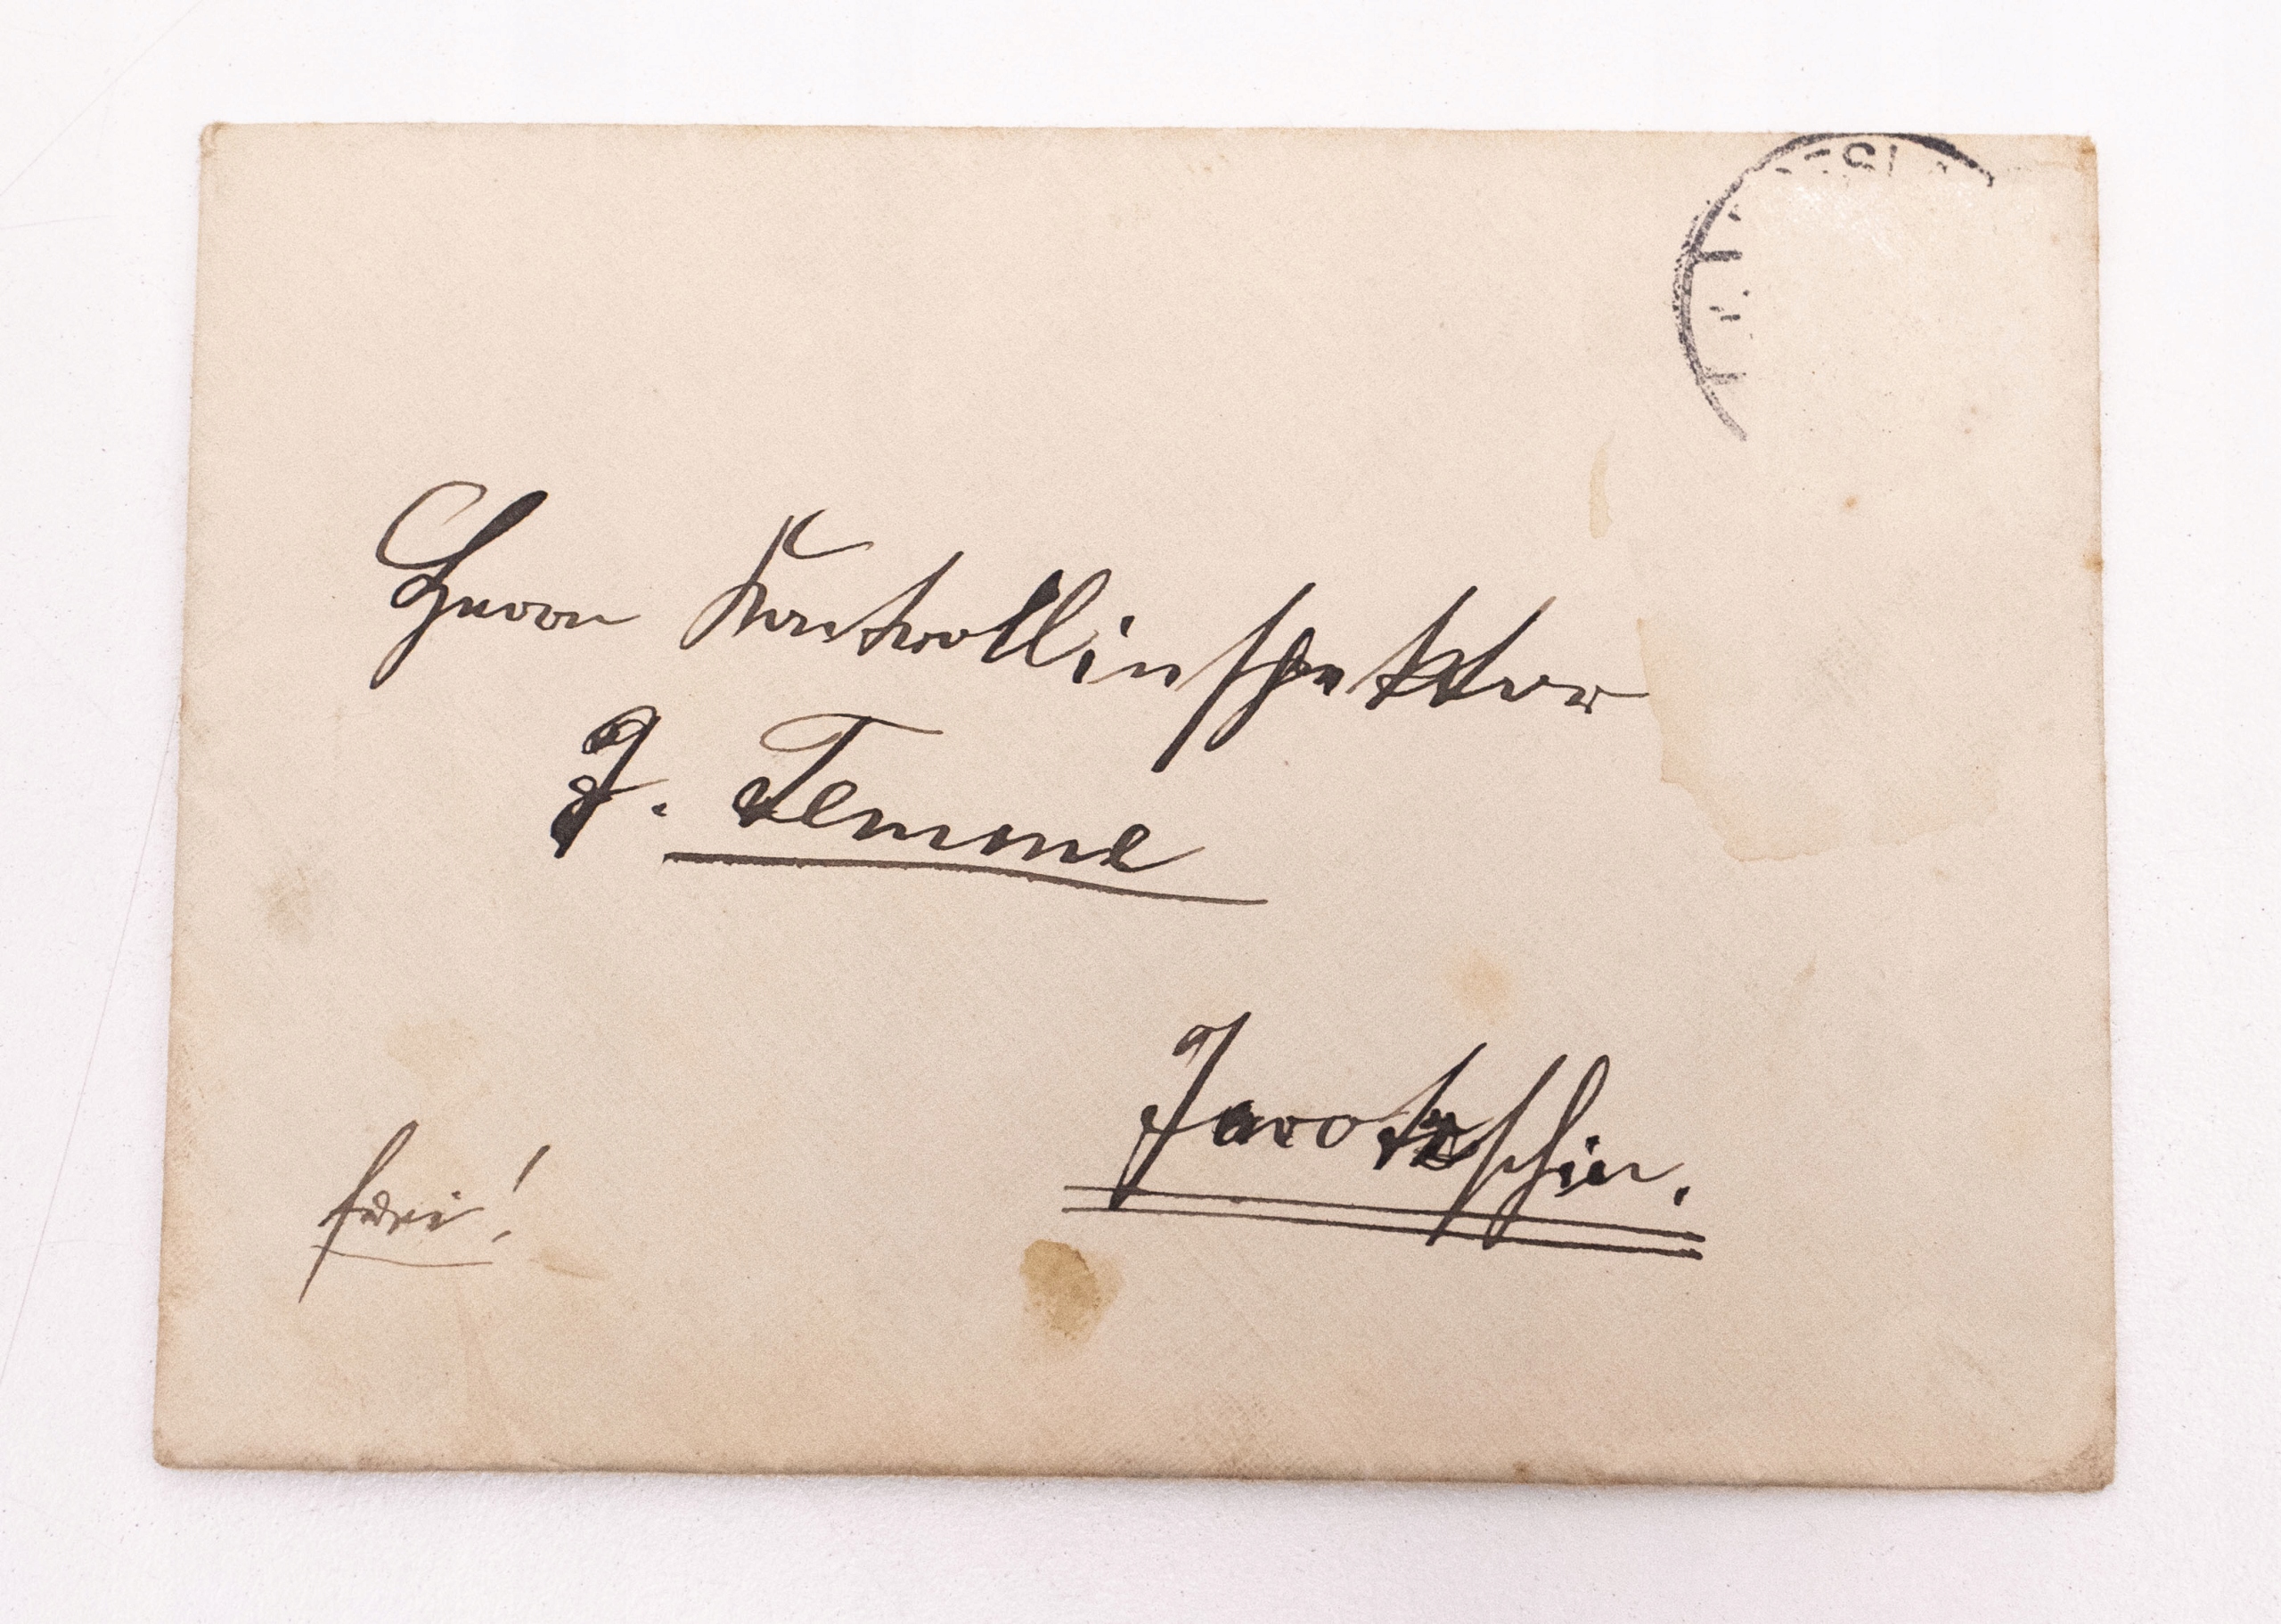 Herrn Kontrollinspektor
J. Temme
Jarotschin.
frei!